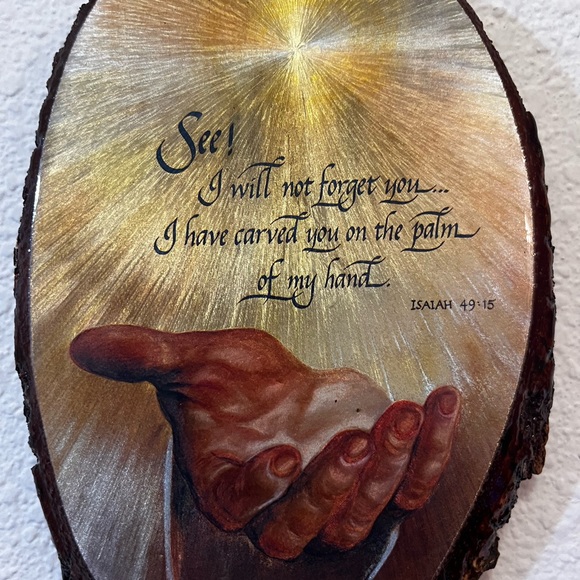 See!
I will not forget you...
I have carved you on the palm
of my hand.
ISAIAH 49:15